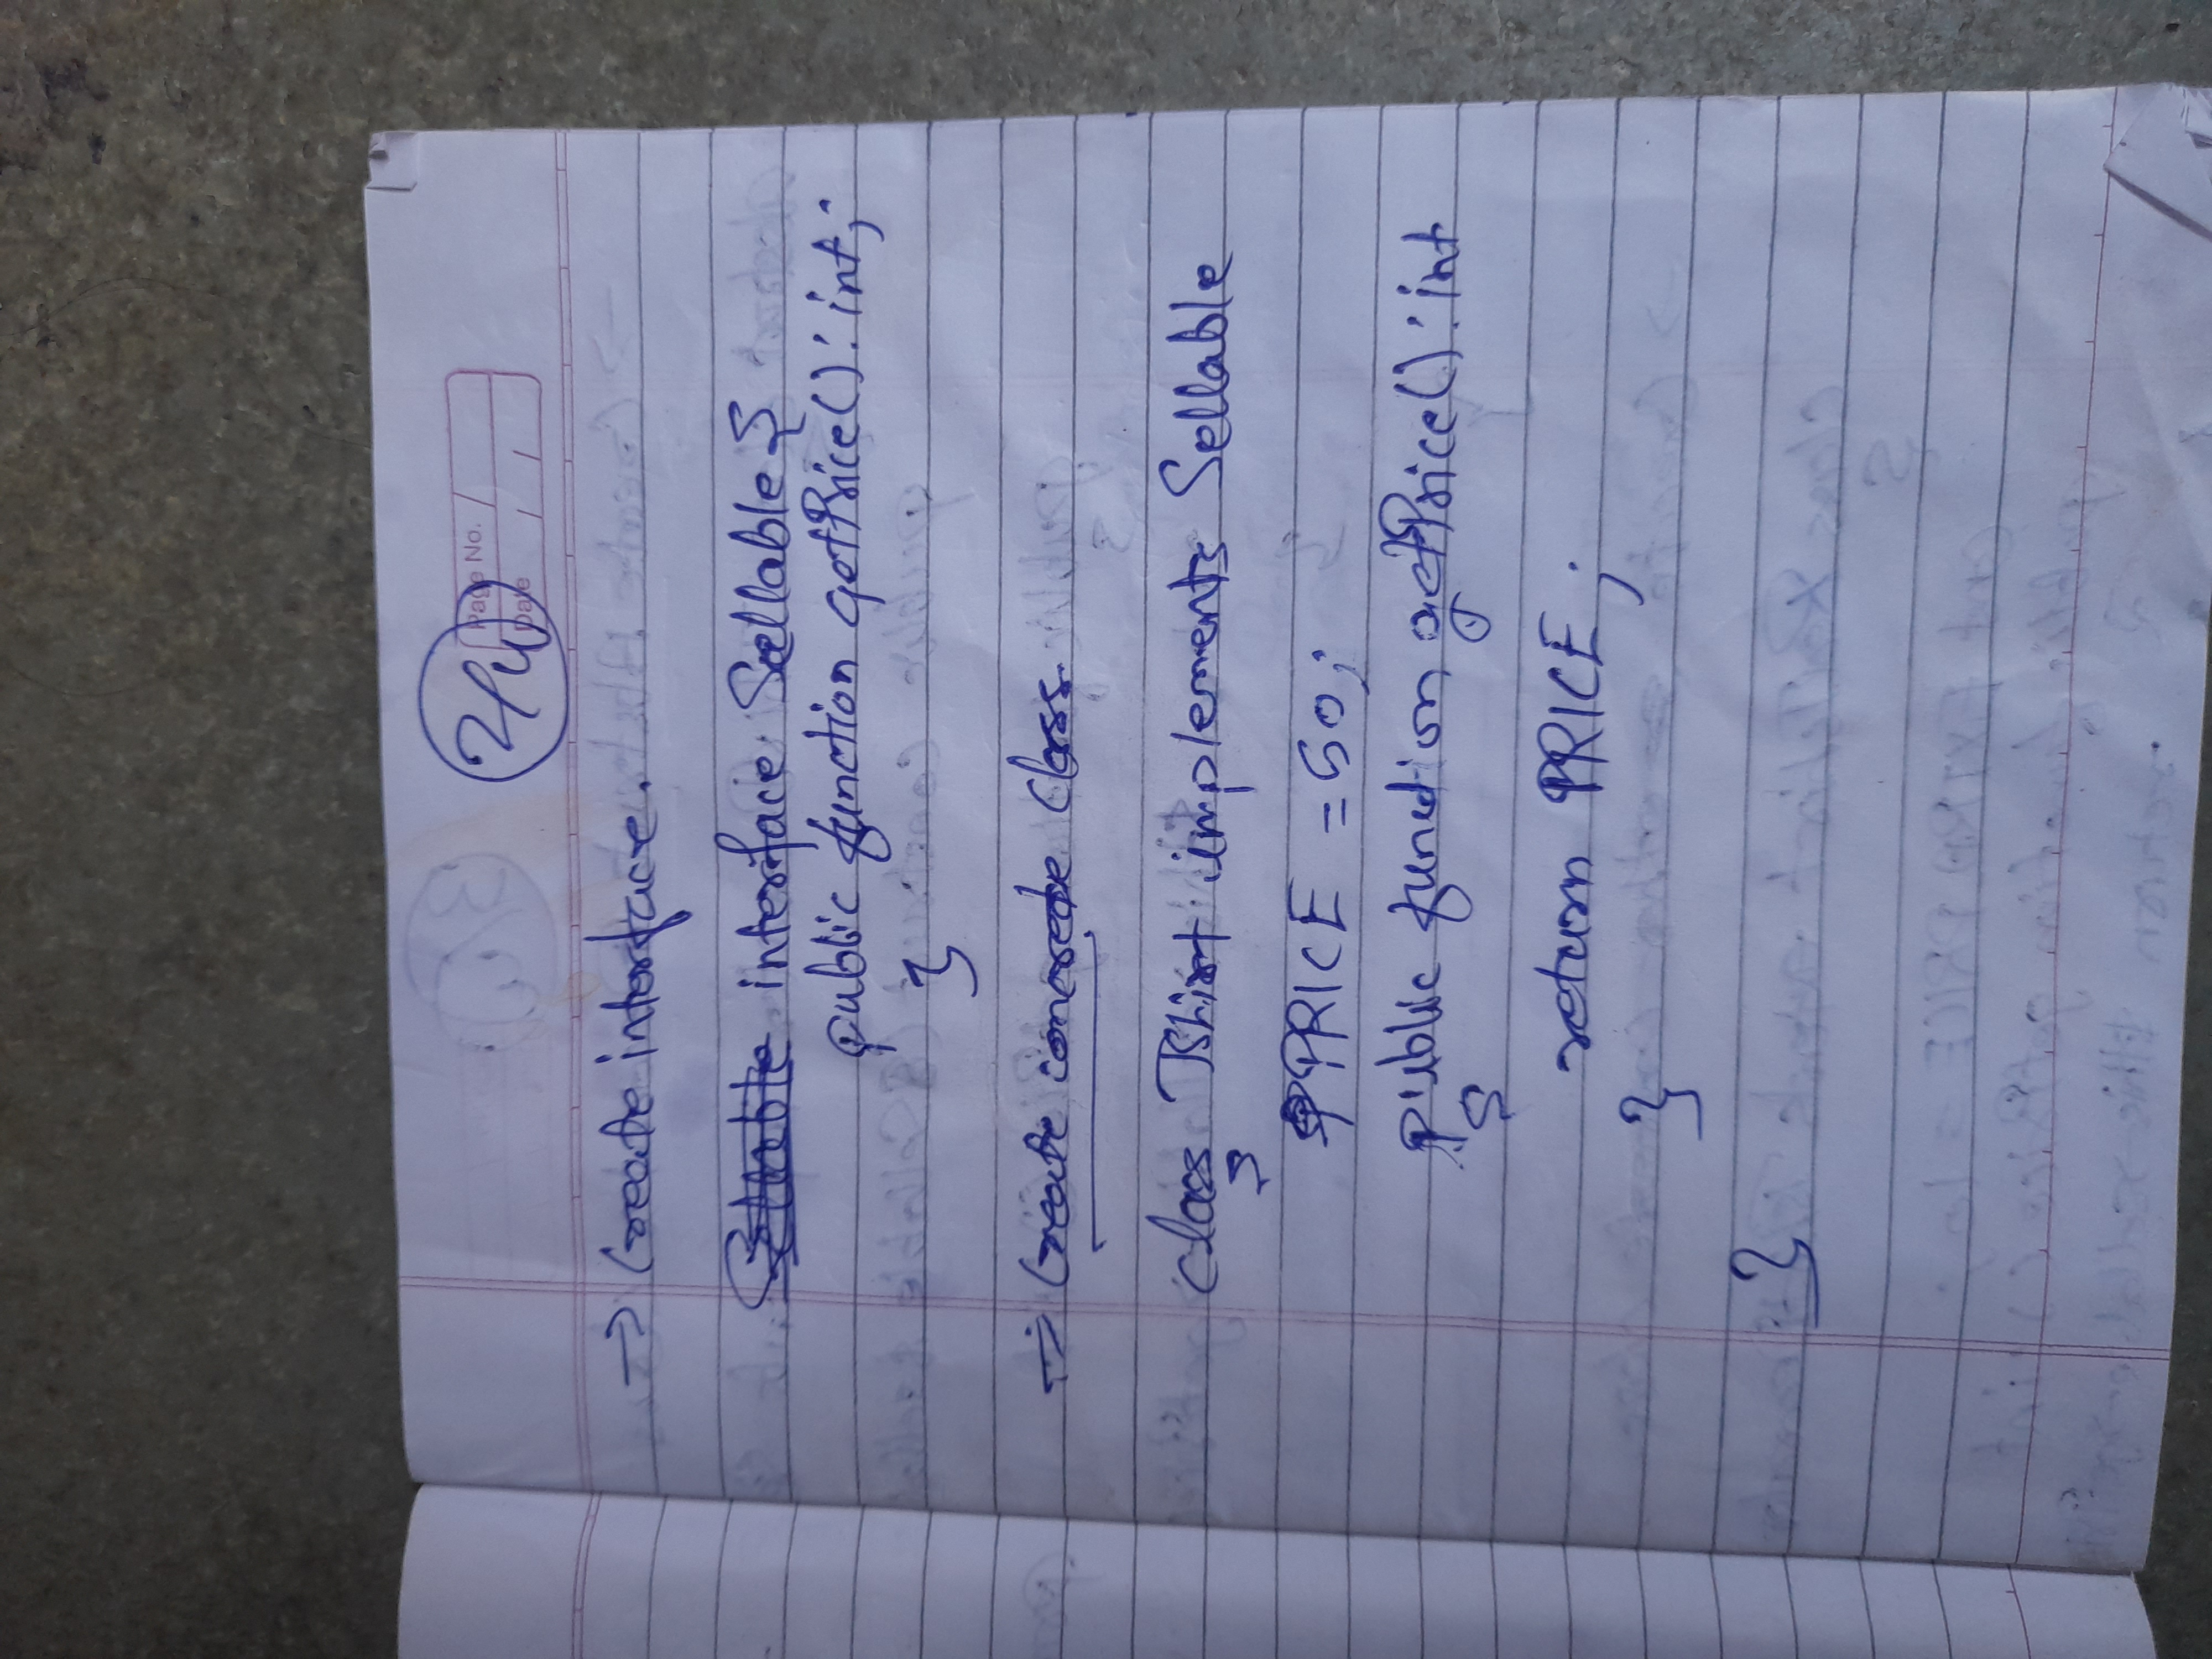 2/4
Page No.
Date / /
→ Create interface.
interface Sellable {
public function getPrice() : int;
}
⇒ Create concrete class.
class TShirt implements Sellable
{
PRICE = 50;
public function getPrice() : int
{
return PRICE;
}
}